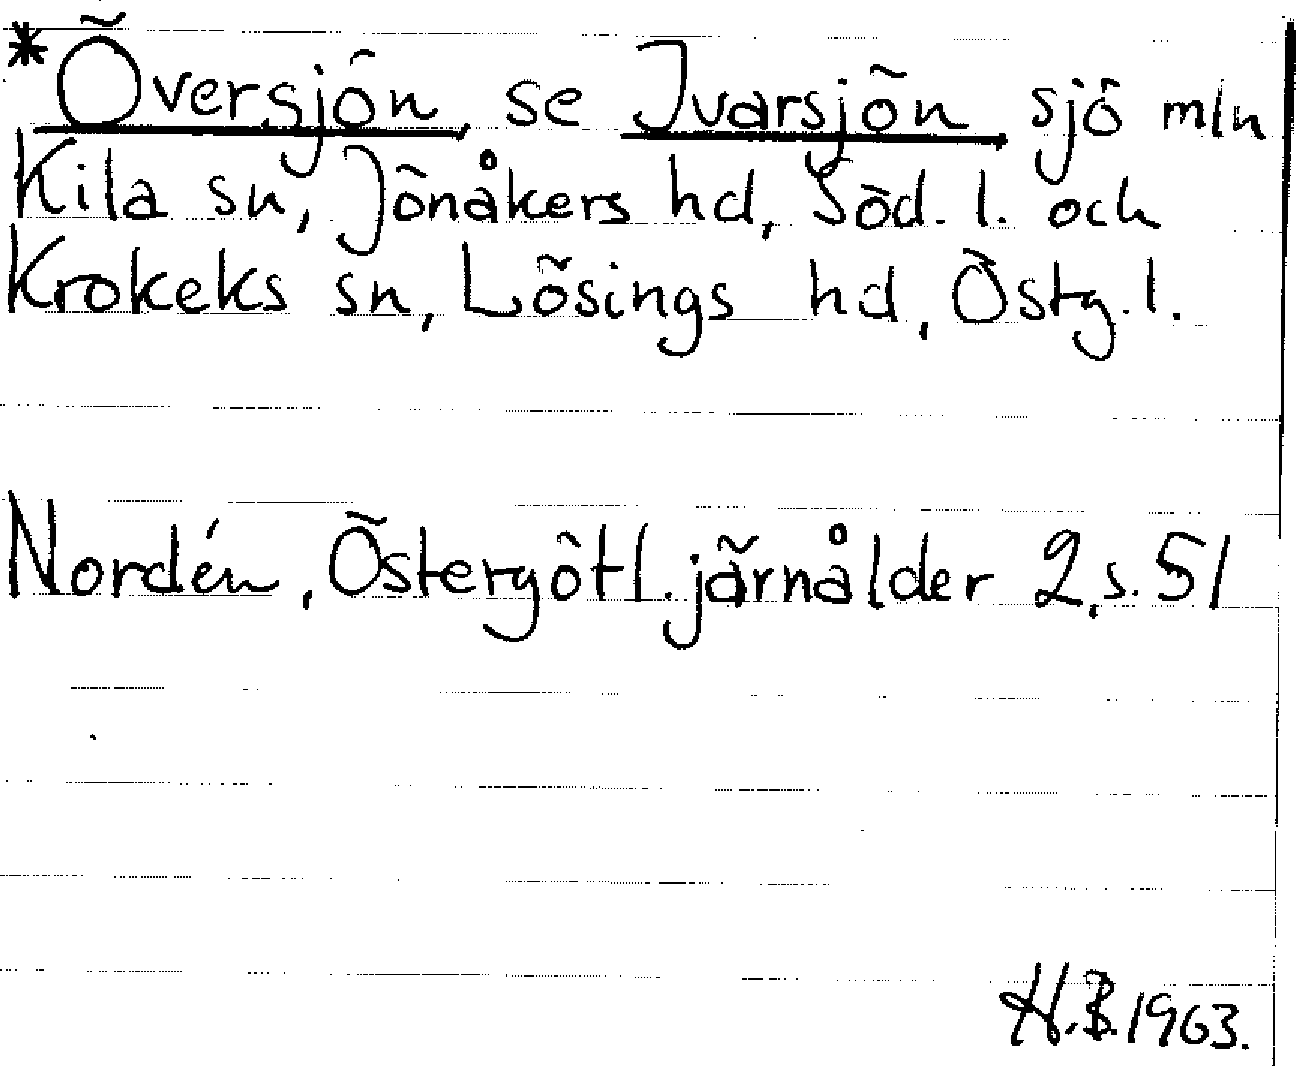 *Översjön, se Ivarsjön sjö mln
Kila sn, Jönåkers hd, Söd. l. och
Krokeks sn, Lösings hd, Östg. l.
Nordén, Östergötl. järnålder 2, s. 51
H.B. 1963.